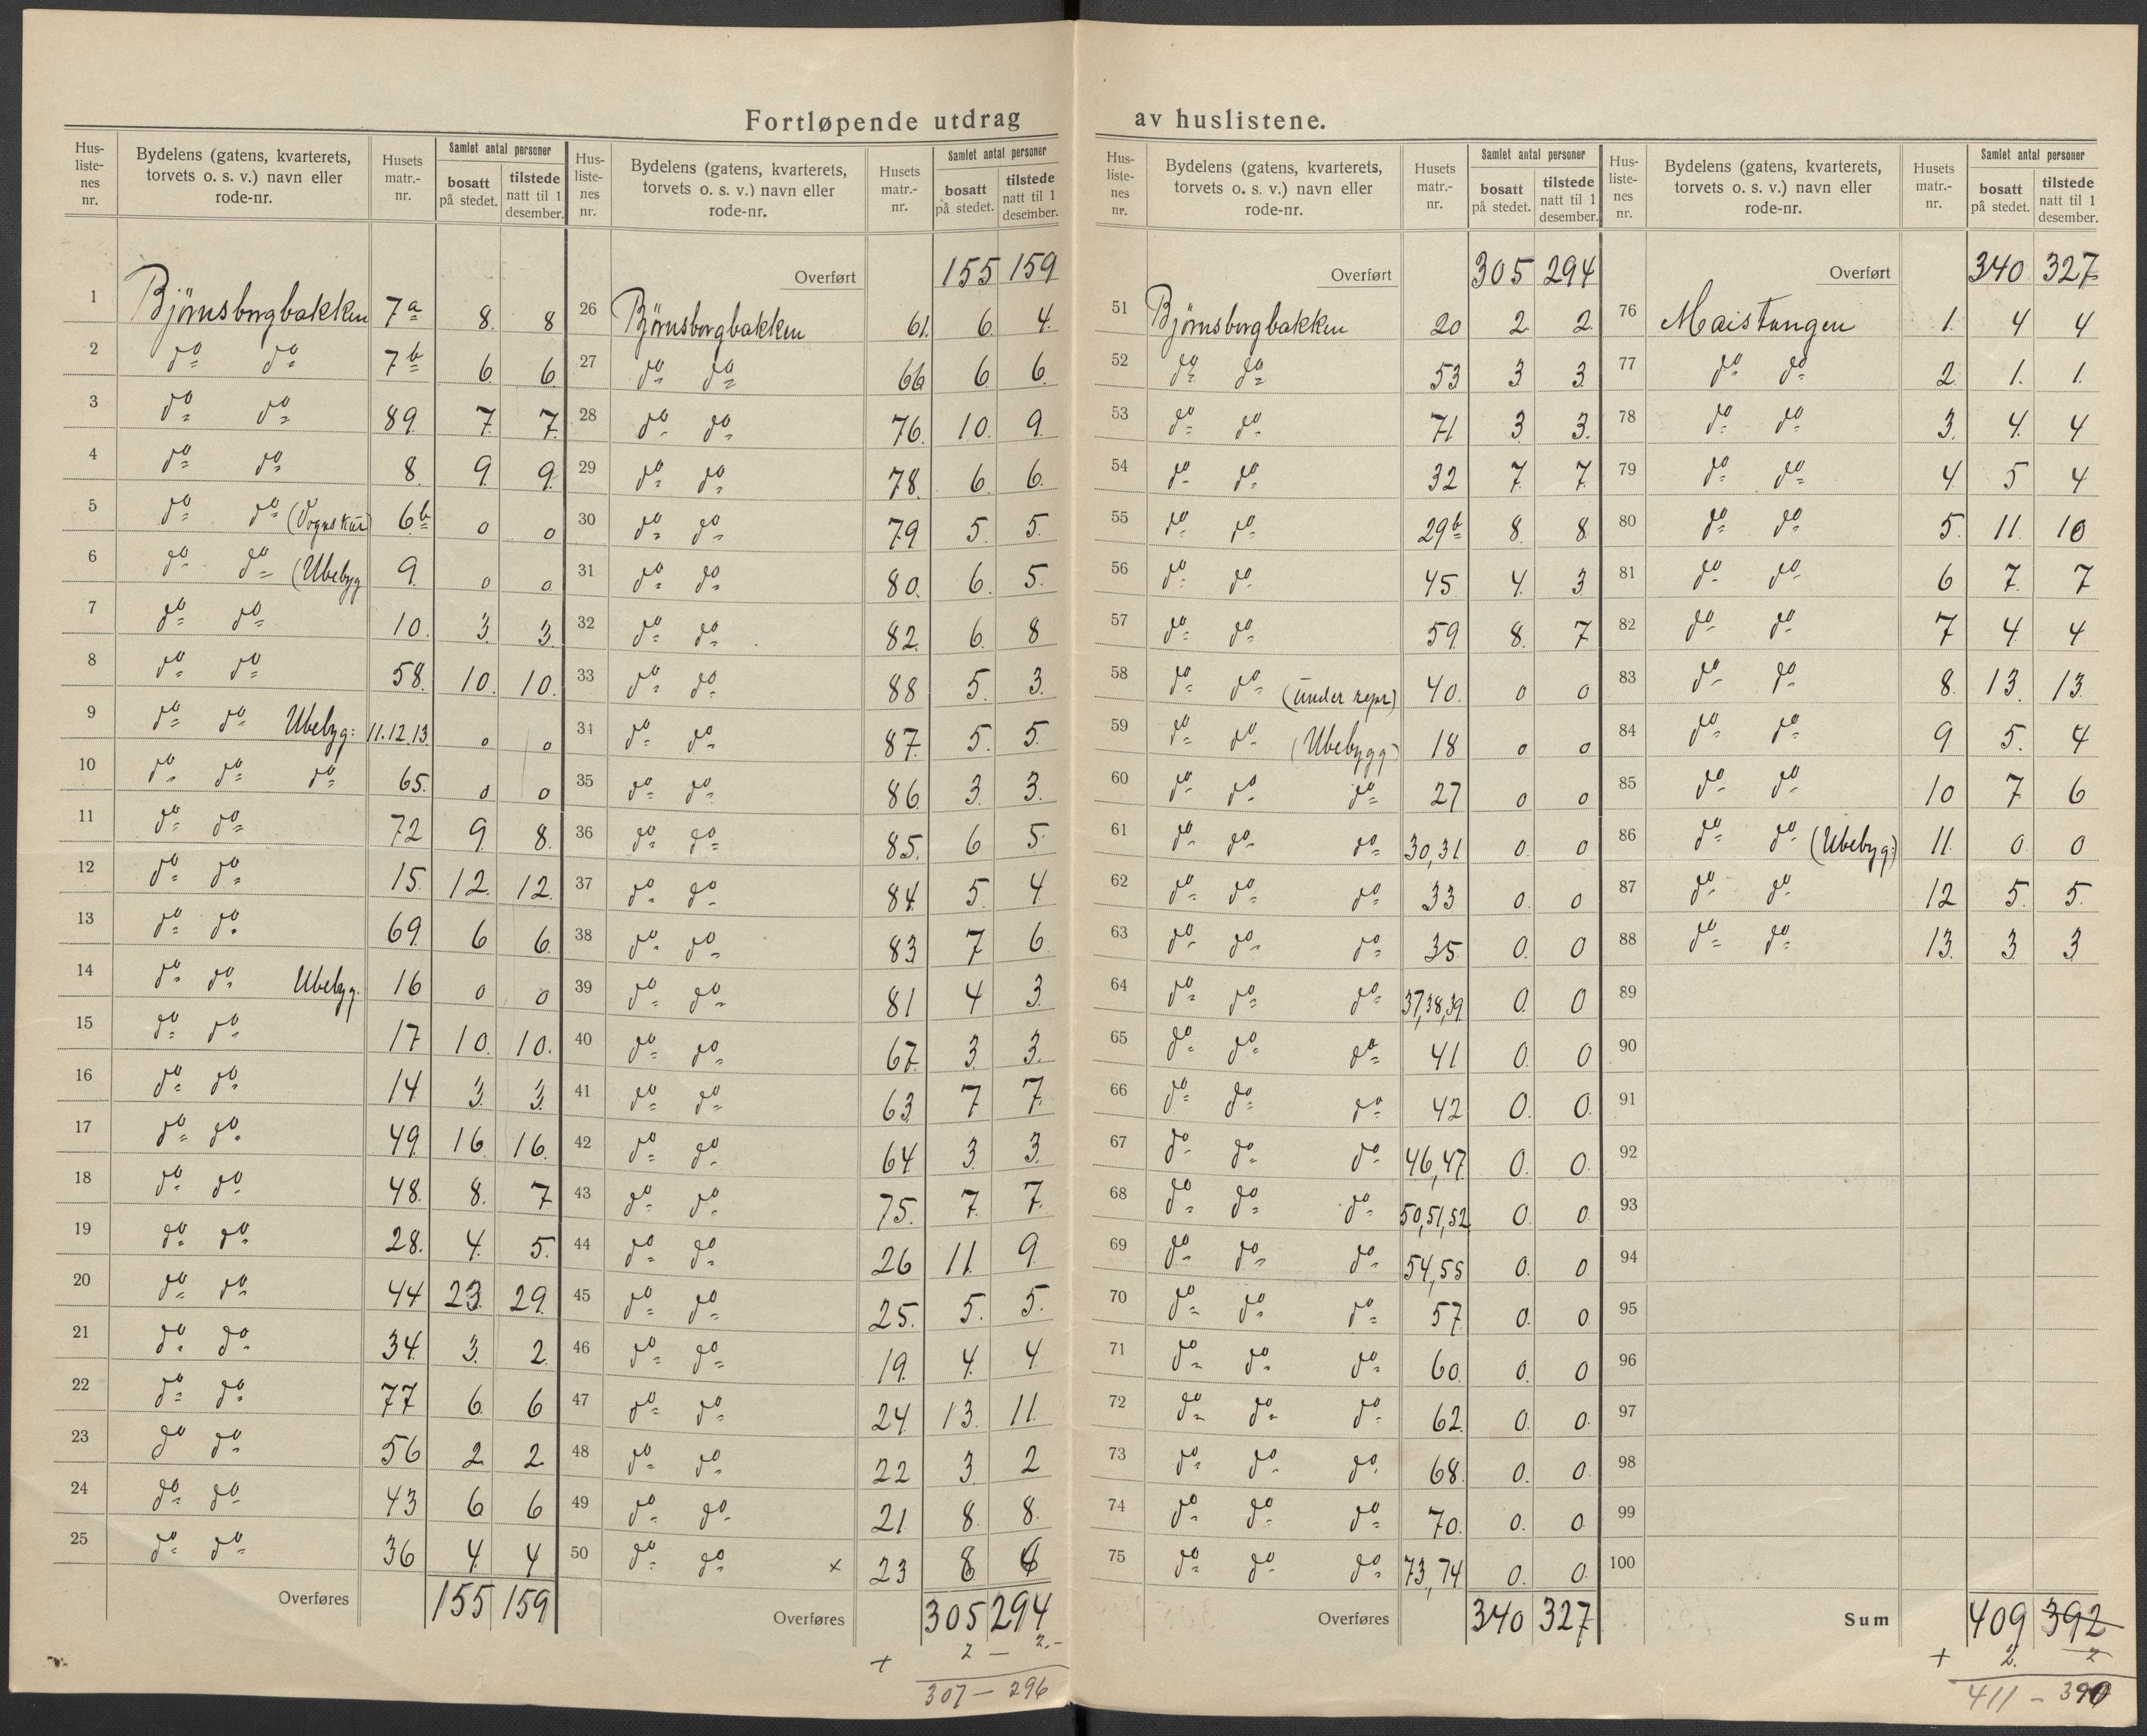 Fortløpende utdrag av huslistene.
Hus-listenes nr. | Bydelens (gatens, kvarterets, torvets o. s. v.) navn eller rode-nr. | Husets matr.-nr. | Samlet antal personer bosatt på stedet. | tilstede natt til 1 desember.
1 Bjørnsborgbakken 7a 8. 8
2 do do 7b 6. 6
3 do do 89. 7. 7.
4 do do 8. 9. 9.
5 do do (Vognskur) 6b 0 0
6 do do (Ubebyg 9. 0 0
7 do do 10. 3. 3.
8 do do 58. 10. 10.
9 do do Ubebyg: 11.12.13. 0 0
10 do do do 65. 0 0
11 do do 72 9. 8.
12 do do 15. 12. 12.
13 do do 69. 6 6.
14 do do Ubebyg. 16 0 0
15 do do 17 10. 10.
16 do do 14 3. 3.
17 do do 49. 16. 16.
18 do do 48. 8. 7
19 do do 28. 4. 5.
20 do do 44 23. 29.
21 do do 34. 3. 2.
22 do do 77 6. 6
23 do do 56 2. 2
24 do do 43 6 6
25 do do 36 4. 4
Overføres 155 159
Hus-listenes nr. | Bydelens (gatens, kvarterets, torvets o. s. v.) navn eller rode-nr. | Husets matr.-nr. | Samlet antal personer bosatt på stedet. | tilstede natt til 1 desember.
Overført 155 159
26 Bjørnsborgbakken 61. 6. 4.
27 do do 66 6. 6.
28 do do 76. 10. 9.
29 do do 78. 6. 6.
30 do do 79 5. 5.
31 do do 80. 6. 5.
32 do do 82. 6. 8
33 do do 88 5. 3.
34 do do 87. 5. 5.
35 do do 86 3. 3.
36 do do 85. 6 5.
37 do do 84. 5. 4.
38 do do 83 7 6.
39 do do 81 4 3.
40 do do 67. 3. 3.
41 do do 63 7 7.
42 do do 64. 3. 3.
43 do do 75. 7. 7.
44 do do 26 11. 9.
45 do do 25. 5. 5.
46 do do 19. 4. 4.
47 do do 24 13. 11.
48 do do 22 3 2
49 do do 21. 8. 8.
50 do do × 23 8 6
Overføres 305 294
+ 2 – 2.-
307 – 296
Hus-listenes nr. | Bydelens (gatens, kvarterets, torvets o. s. v.) navn eller rode-nr. | Husets matr.-nr. | Samlet antal personer bosatt på stedet. | tilstede natt til 1 desember.
Overført 305 294
51 Bjørnsborgbakken 20 2. 2.
52 do do 53 3 3.
53 do do 71 3 3.
54 do do 32 7. 7.
55 do do 29b 8. 8.
56 do do 45 4. 3
57 do do 59. 8. 7.
58 do do (under repr) 40. 0 0
59 do do (Ubebygg) 18 0 0
60 do do do 27 0 0
61 do do do 30,31 0. 0
62 do do do 33 0. 0
63 do do do 35 0. 0
64 do do do 37,38,39 0. 0
65 do do do 41 0. 0
66 do do do 42 0. 0.
67 do do do 46,47. 0. 0.
68 do do do 50,51,52. 0. 0.
69 do do do 54,55 0. 0
70 do do do 57. 0. 0
71 do do do 60. 0. 0
72 do do do 62. 0. 0.
73 do do do 68. 0. 0.
74 do do do 70. 0. 0.
75 do do do 73,74 0. 0.
Overføres 340 327
Hus-listenes nr. | Bydelens (gatens, kvarterets, torvets o. s. v.) navn eller rode-nr. | Husets matr.-nr. | Samlet antal personer bosatt på stedet. | tilstede natt til 1 desember.
Overført 340 327
76 Maistangen 1. 4 4
77 do do 2. 1. 1.
78 do do 3. 4. 4
79 do do 4 5 4
80 do do 5. 11. 10
81 do do 6 7. 7
82 do do 7 4 4
83 do do 8. 13. 13.
84 do do 9 5. 4
85 do do 10 7. 6
86 do do (Ubebyg:) 11. 0. 0
87 do do 12 5. 5.
88 do do 13. 3 3
89
90
91
92
93
94
95
96
97
98
99
100
Sum 409 392
+ 2. 2
411 – 390